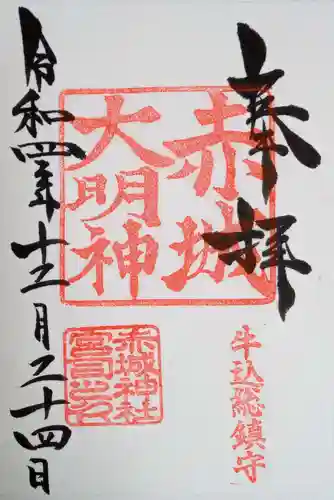 奉拝
赤城
大明神
牛込総鎮守
赤城神社
令和四年十二月二十四日